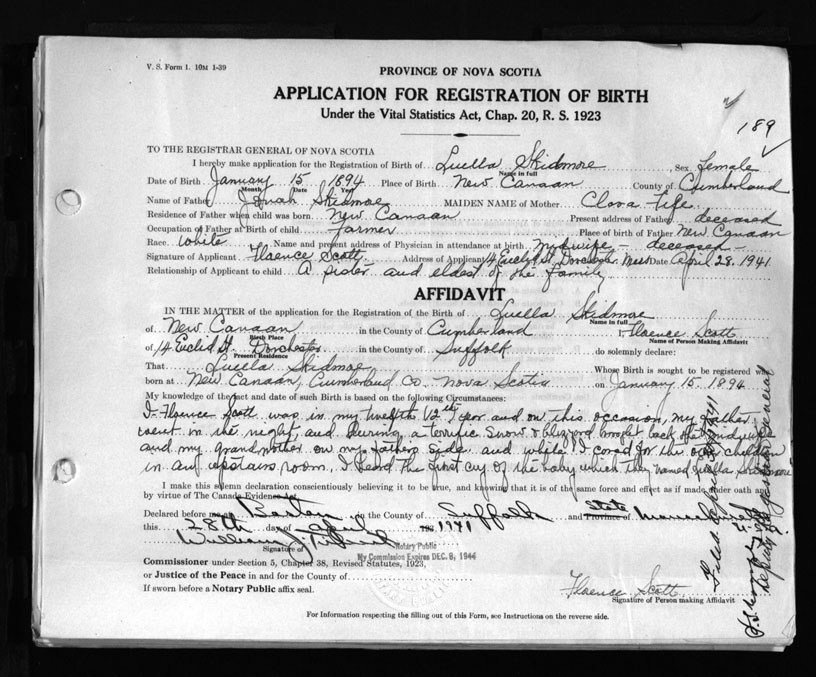 V. S. Form 1. 10M 1-39
PROVINCE OF NOVA SCOTIA
APPLICATION FOR REGISTRATION OF BIRTH
Under the Vital Statistics Act, Chap. 20, R. S. 1923
189
TO THE REGISTRAR GENERAL OF NOVA SCOTIA
I hereby make application for the Registration of Birth of Luella Skidmore, Sex Female
Name in full
Date of Birth January 15 1894 Place of Birth New Canaan County of Cumberland
Month Date Year
Name of Father Jonah Skidmore MAIDEN NAME of Mother Clova Fife
Residence of Father when child was born New Canaan Present address of Father deceased
Occupation of Father at Birth of child farmer Place of birth of Father New Canaan
Race white Name and present address of Physician in attendance at birth midwife - deceased -
Signature of Applicant Florence Scott Address of Applicant 14 Euclid St. Dorchester Mass Date April 28. 1941
Relationship of Applicant to child A sister and eldest of the family
AFFIDAVIT
IN THE MATTER of the application for the Registration of the Birth of Luella Skidmore
Name in full
of New Canaan in the County of Cumberland I, Florence Scott
Birth Place Name of Person Making Affidavit
of 14 Euclid St. Dorchester in the County of Suffolk do solemnly declare:
Present Residence
That Luella Skidmore Whose Birth is sought to be registered was
born at New Canaan, Cumberland Co. Nova Scotia on January 15, 1894
My knowledge of the fact and date of such Birth is based on the following Circumstances:
I- Florence Scott was in my twelfth year and on this occasion, my father
went in the night, and during a terrific snow blizzard brought back the midwife
and my grandmother on my fathers side and while I cared for the other children
in an upstairs room, I heard the first cry of the baby which they named Luella Skidmore
I make this solemn declaration conscientiously believing it to be true, and knowing that it is of the same force and effect as if made under oath and
by virtue of The Canada Evidence
Declared before me Boston in the County of Suffolk and Province of State Massachusetts
this 28th day of April 1941
William J.
Signature of Notary Public
My Commission Expires DEC. 8, 1944
Commissioner under Section 5, Chapter 38, Revised Statutes, 1923,
or Justice of the Peace in and for the County of
If sworn before a Notary Public affix seal.
Florence Scott
Signature of Person making Affidavit
For Information respecting the filling out of this Form, see Instructions on the reverse side.
Filed
Deputy Registrar General